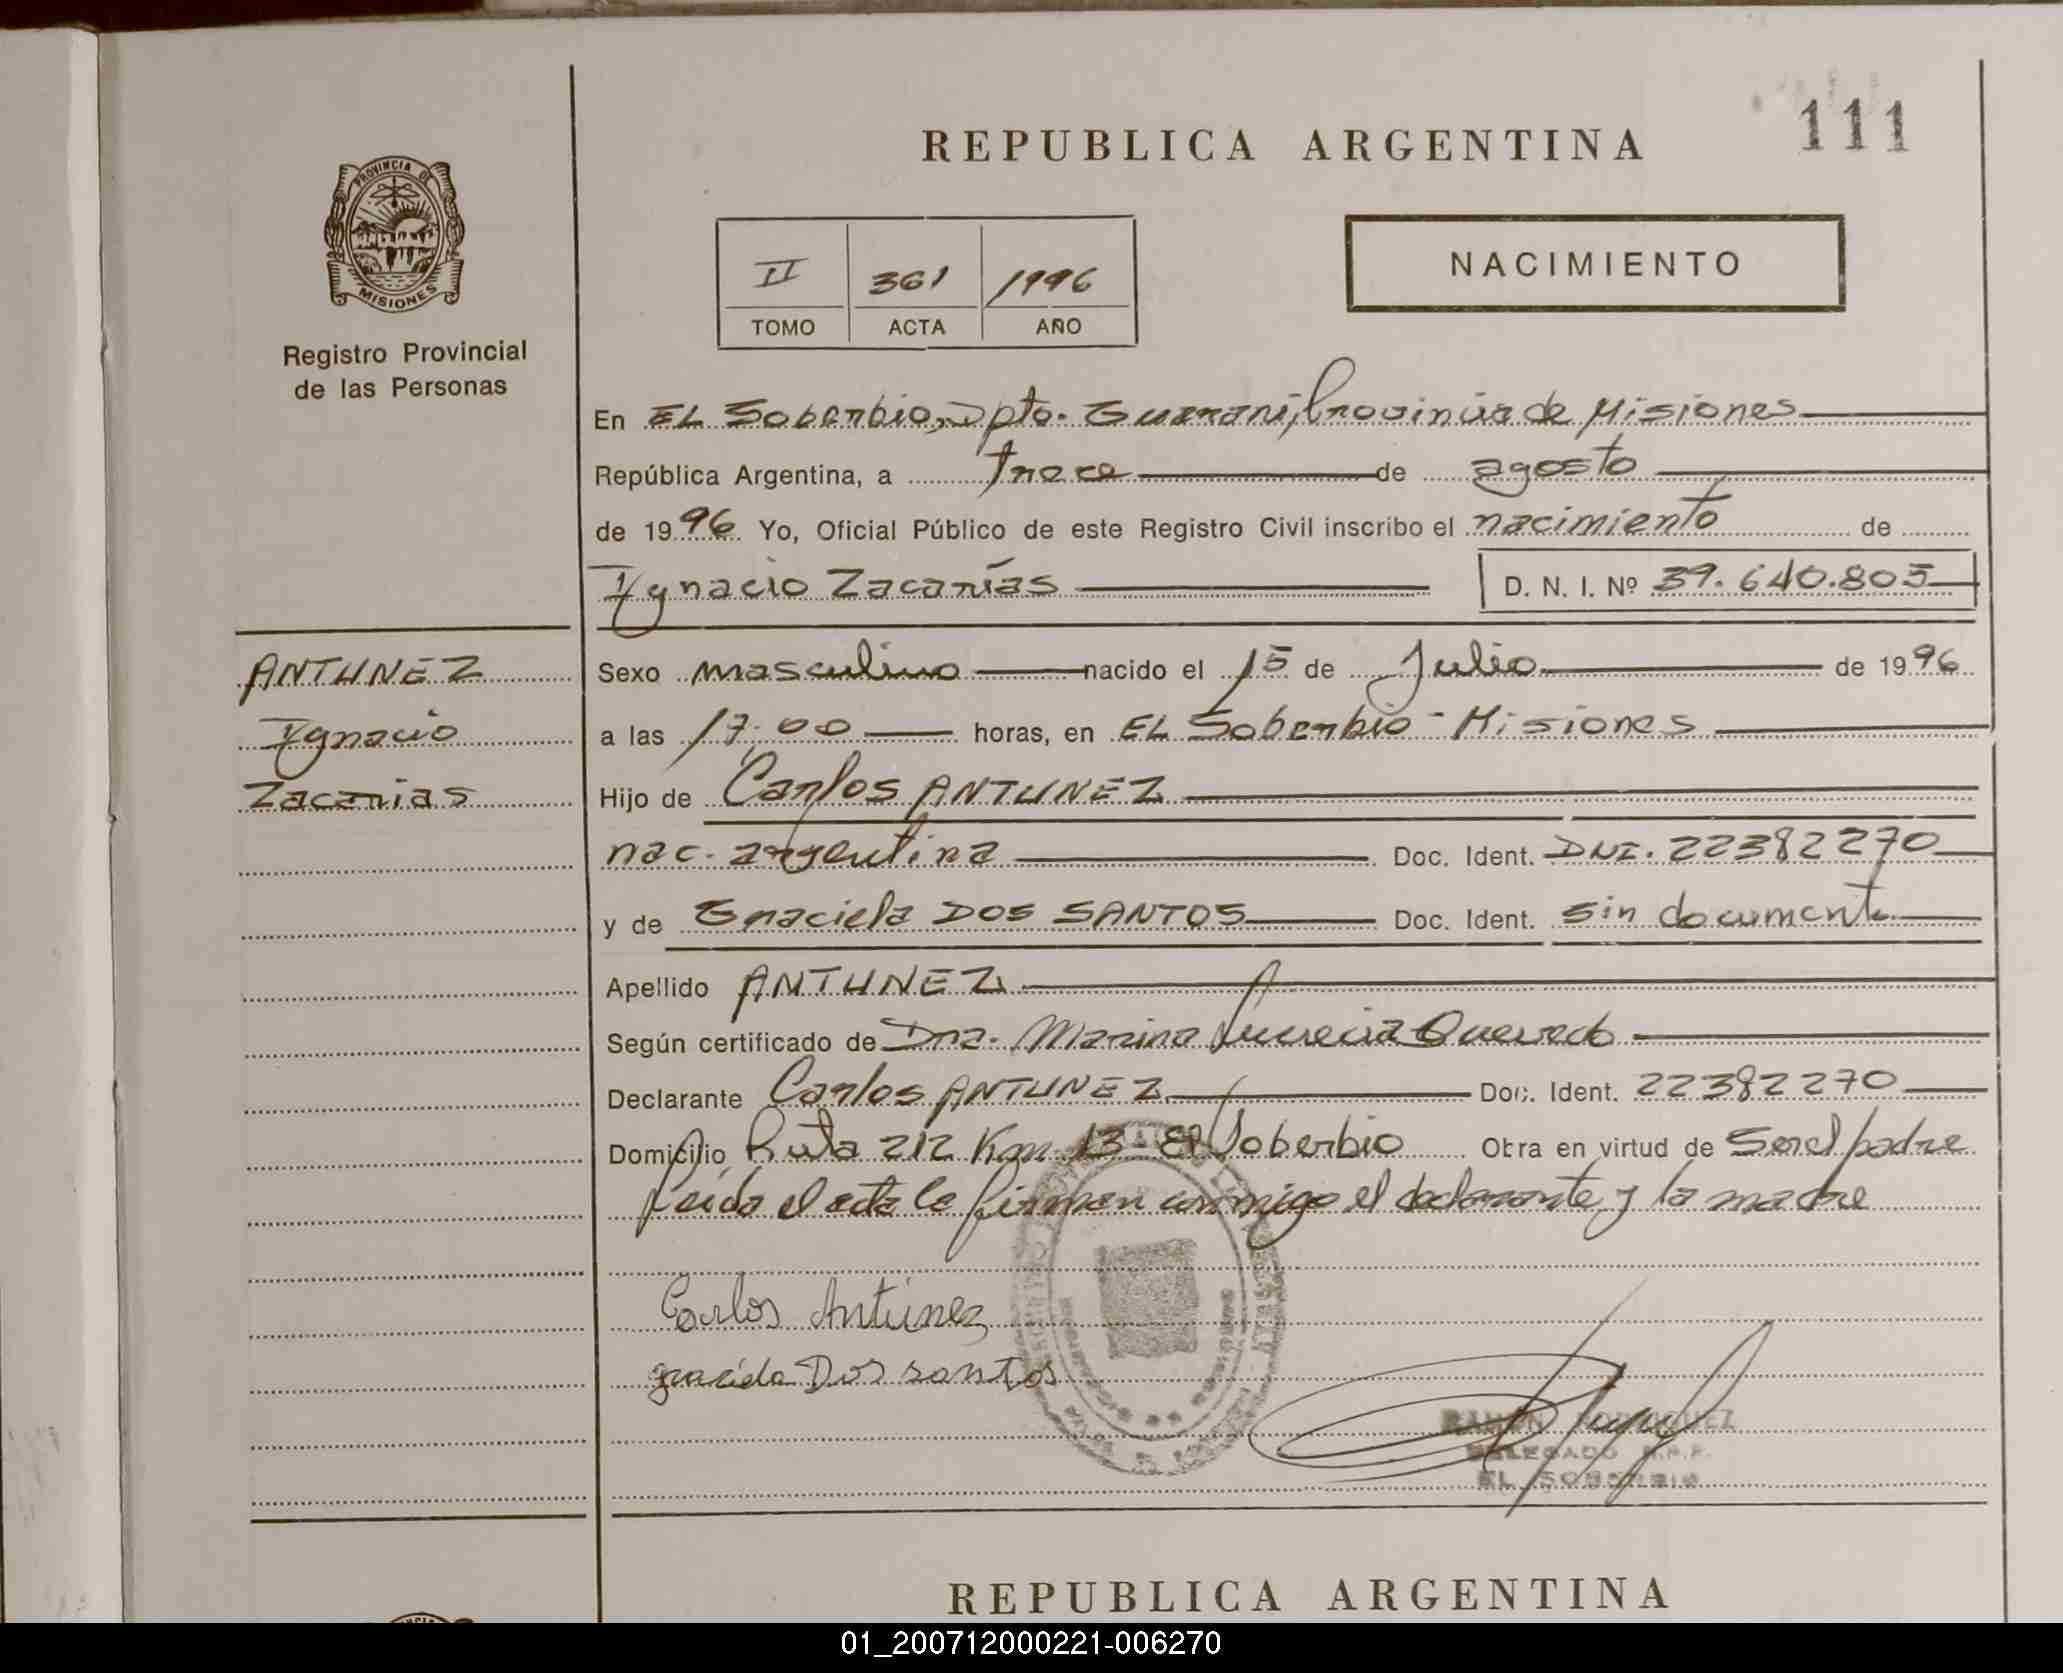 REPUBLICA ARGENTINA
111
PROVINCIA DE
MISIONES
Registro Provincial
de las Personas
II 361 1996
TOMO ACTA AÑO
NACIMIENTO
En EL Soberbio, Dpto. Guarani, Provincia de Misiones
República Argentina, a trece de agosto
de 1996 Yo, Oficial Público de este Registro Civil inscribo el nacimiento de
Ygnacio Zacarías D. N. I. Nº 39.640.805
ANTUNEZ
Ygnacio
Zacarias
Sexo masculino nacido el 15 de Julio de 1996
a las 17:00 horas, en EL Soberbio - Misiones
Hijo de Carlos ANTUNEZ
nac. argentina Doc. Ident. DNI. 22382270
y de Graciela DOS SANTOS Doc. Ident. sin documento
Apellido ANTUNEZ
Según certificado de Dra. Marina Lucrecia Quevedo
Declarante Carlos ANTUNEZ Doc. Ident. 22382270
Domicilio Ruta 212 Km 13 El Soberbio Obra en virtud de Ser el padre
Leída el acta la firman conmigo el declarante y la madre
Carlos Antúnez
graciela Dos santos
RAMON RODRIGUEZ
DELEGADO R.P.P.
EL SOBERBIO
REPUBLICA ARGENTINA
01_200712000221-006270